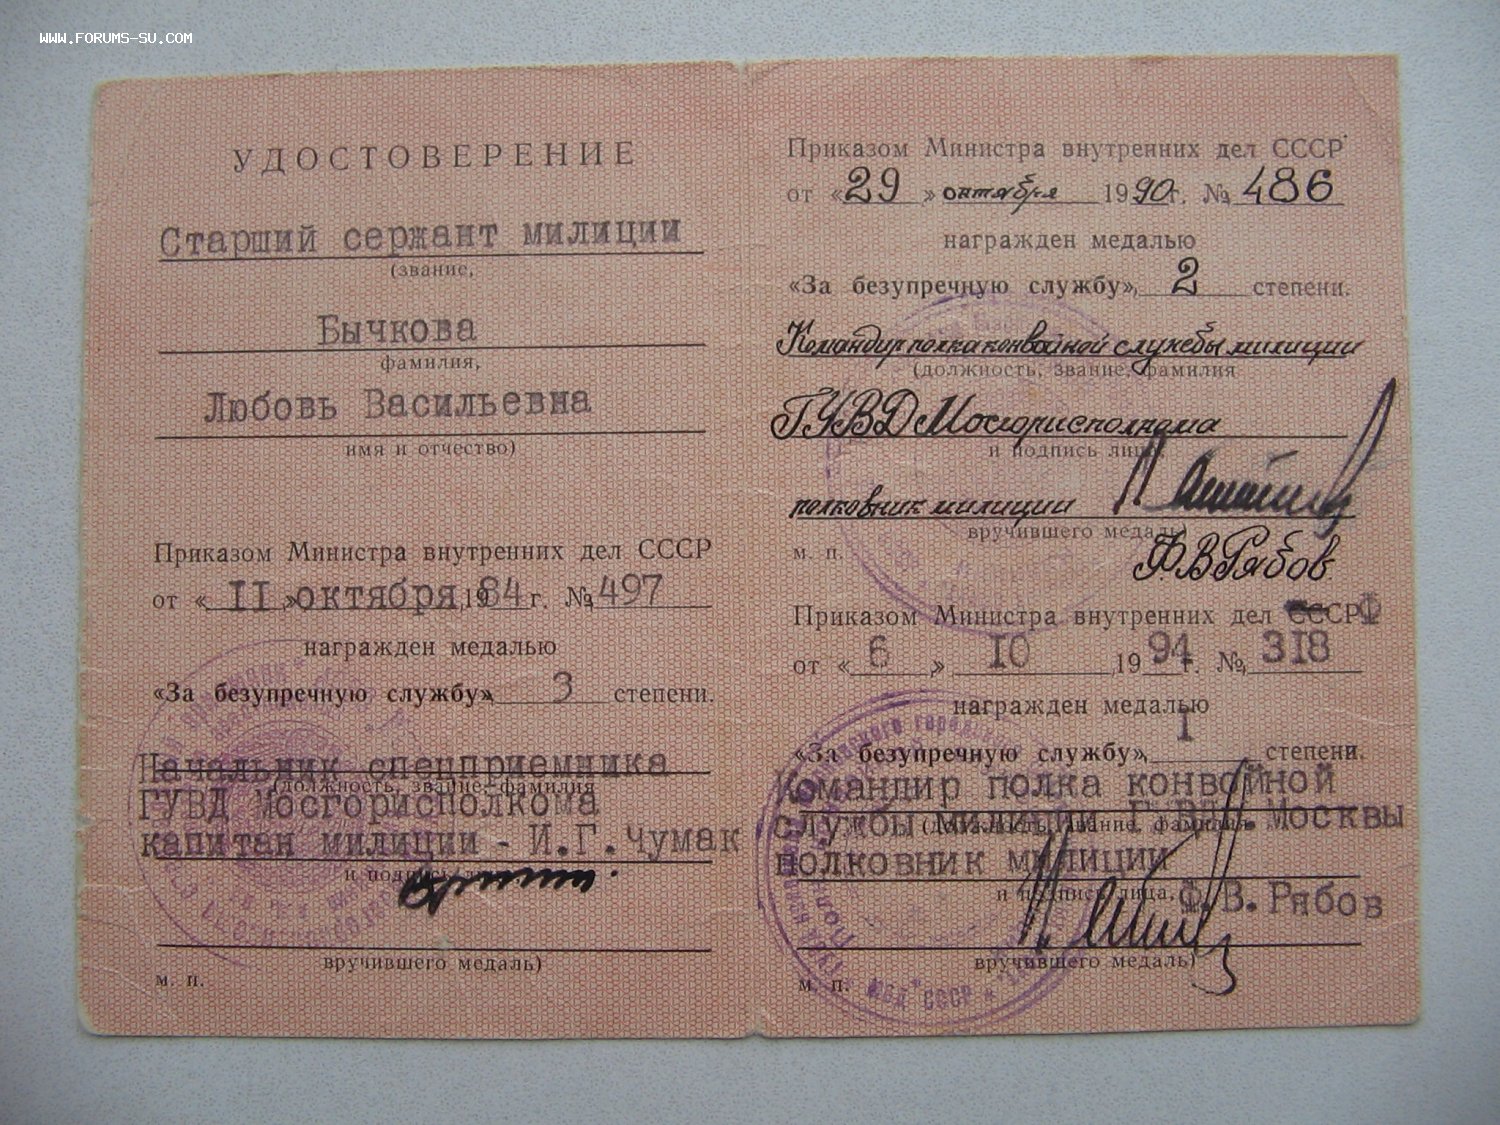 WWW.FORUMS-SU.COM
УДОСТОВЕРЕНИЕ
Старший сержант милиции
(звание,
Бычкова
фамилия,
Любовь Васильевна
имя и отчество)
Приказом Министра внутренних дел СССР
от « 11 » октября 1984 г. № 497
награжден медалью
«За безупречную службу», 3 степени.
Начальник спецприемника
(должность, звание, фамилия
ГУВД Мосгорисполкома
капитан милиции - И.Г.Чумак
и подпись лица,
вручившего медаль)
м. п.
Приказом Министра внутренних дел СССР
от «29» октября 1990г. № 486
награжден медалью
«За безупречную службу», 2 степени.
Командир полка конвойной службы милиции
(должность, звание, фамилия
ГУВД Мосгорисполкома
и подпись лица,
полковник милиции
вручившего медаль)
м. п.
Ф.В.Рябов
Приказом Министра внутренних дел СССРФ
от « 6 » 10 1994г. № 318
награжден медалью
«За безупречную службу», I степени.
Командир полка конвойной
службы милиции ГУВД г.Москвы
(должность, звание, фамилия
полковник милиции
и подпись лица, Ф.В.Рябов
вручившего медаль)
м. п.
МВД СССР